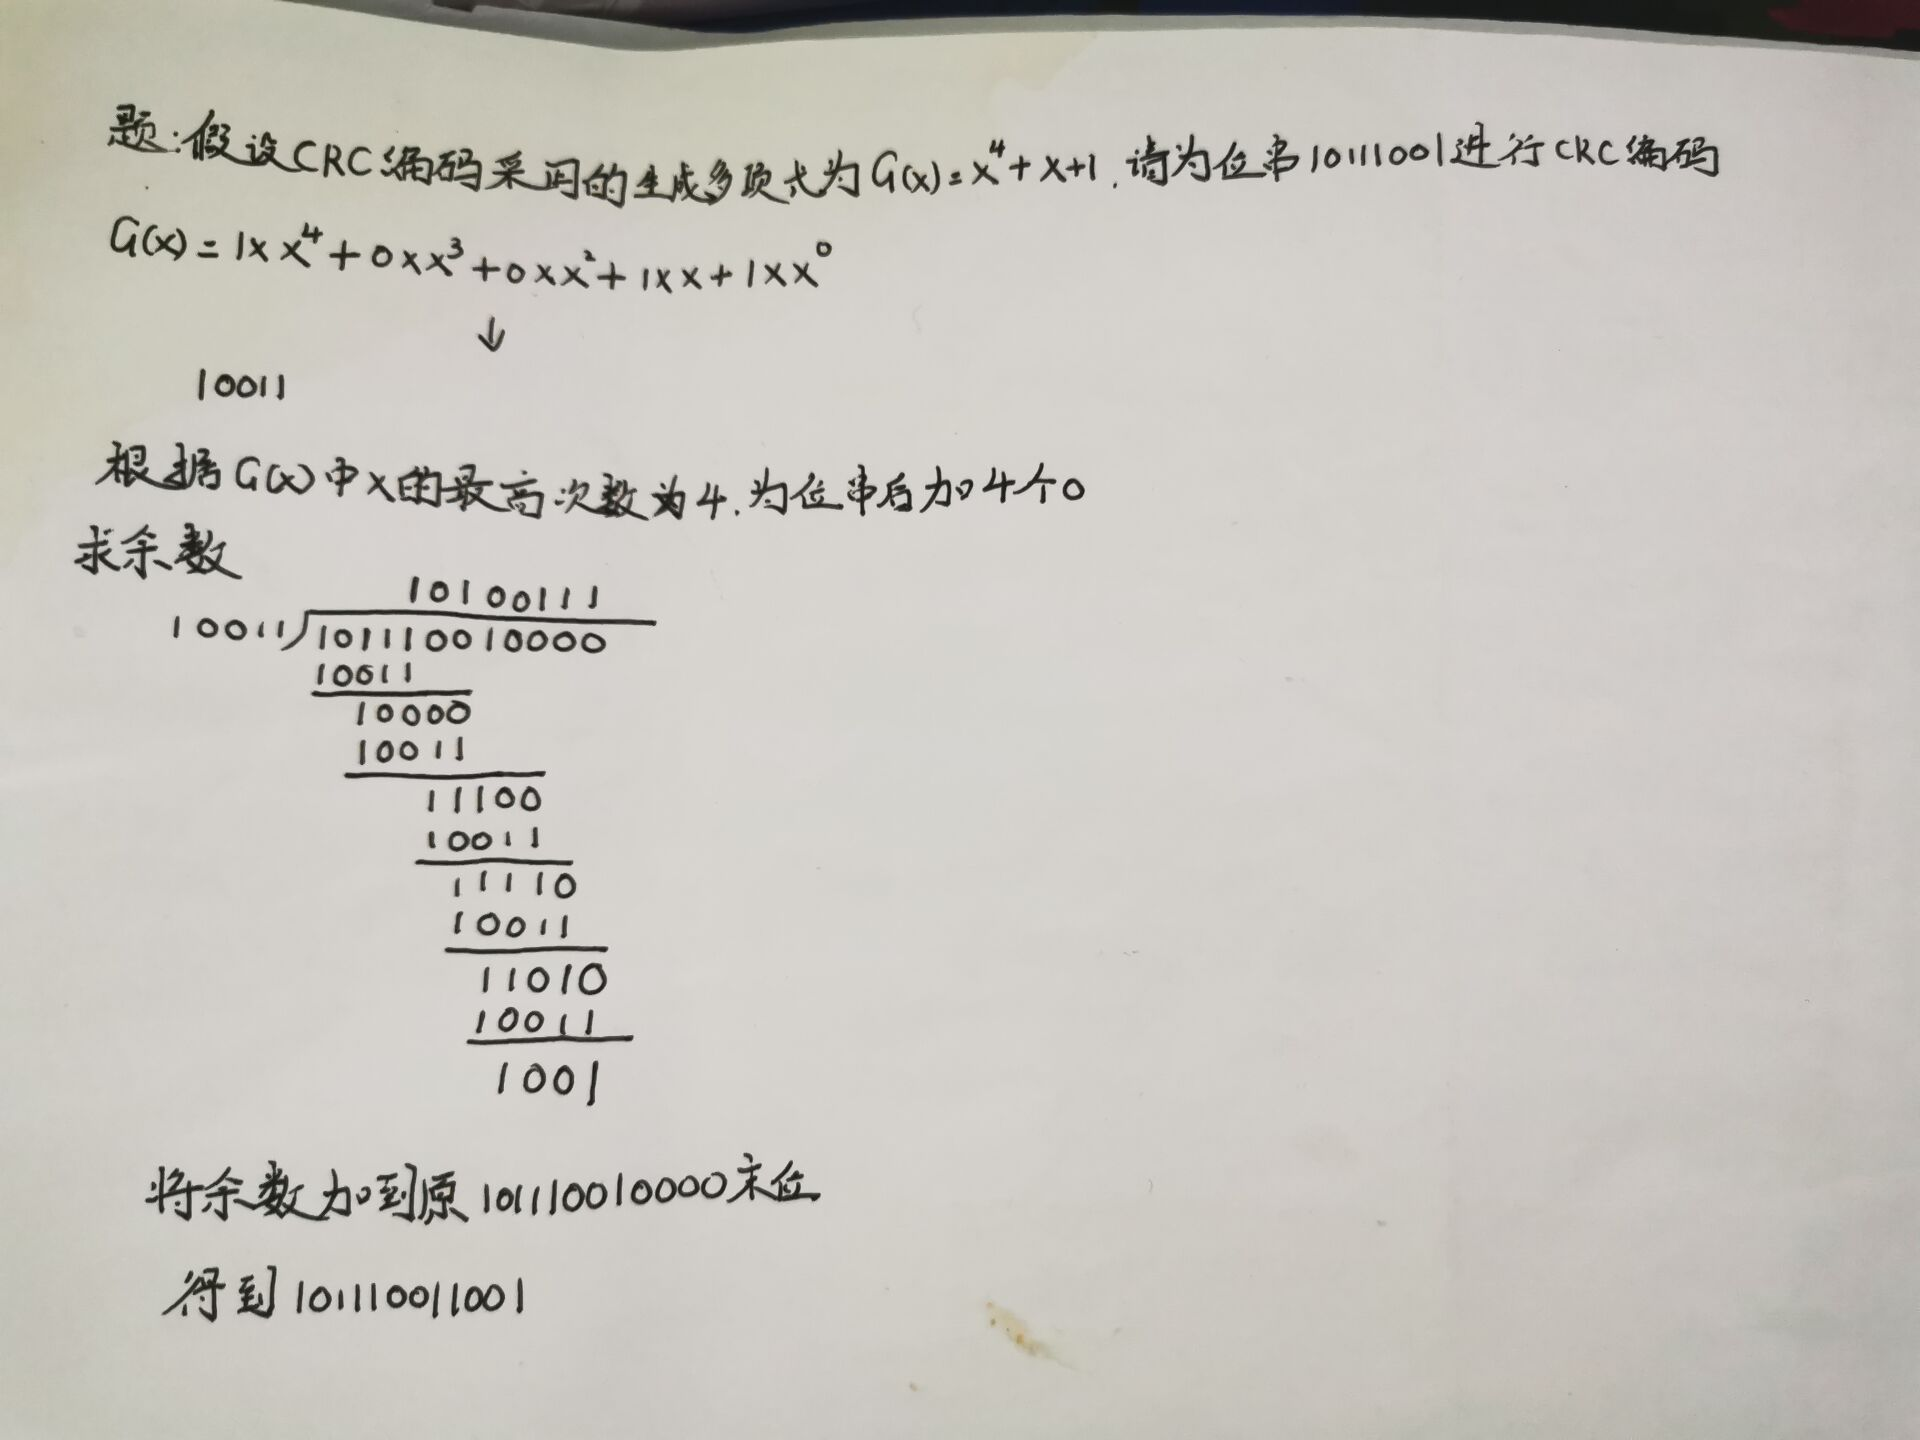 题:假设CRC编码采用的生成多项式为G(x)=x⁴+x+1,请为位串10111001进行CRC编码
G(x)=1×x⁴+0×x³+0×x²+1×x+1×x⁰
↓
10011
根据G(x)中x的最高次数为4,为位串后加4个0
求余数
10100111
10011)101110010000
10011
10000
10011
11100
10011
11110
10011
11010
10011
1001
将余数加到原101110010000末位
得到101110011001